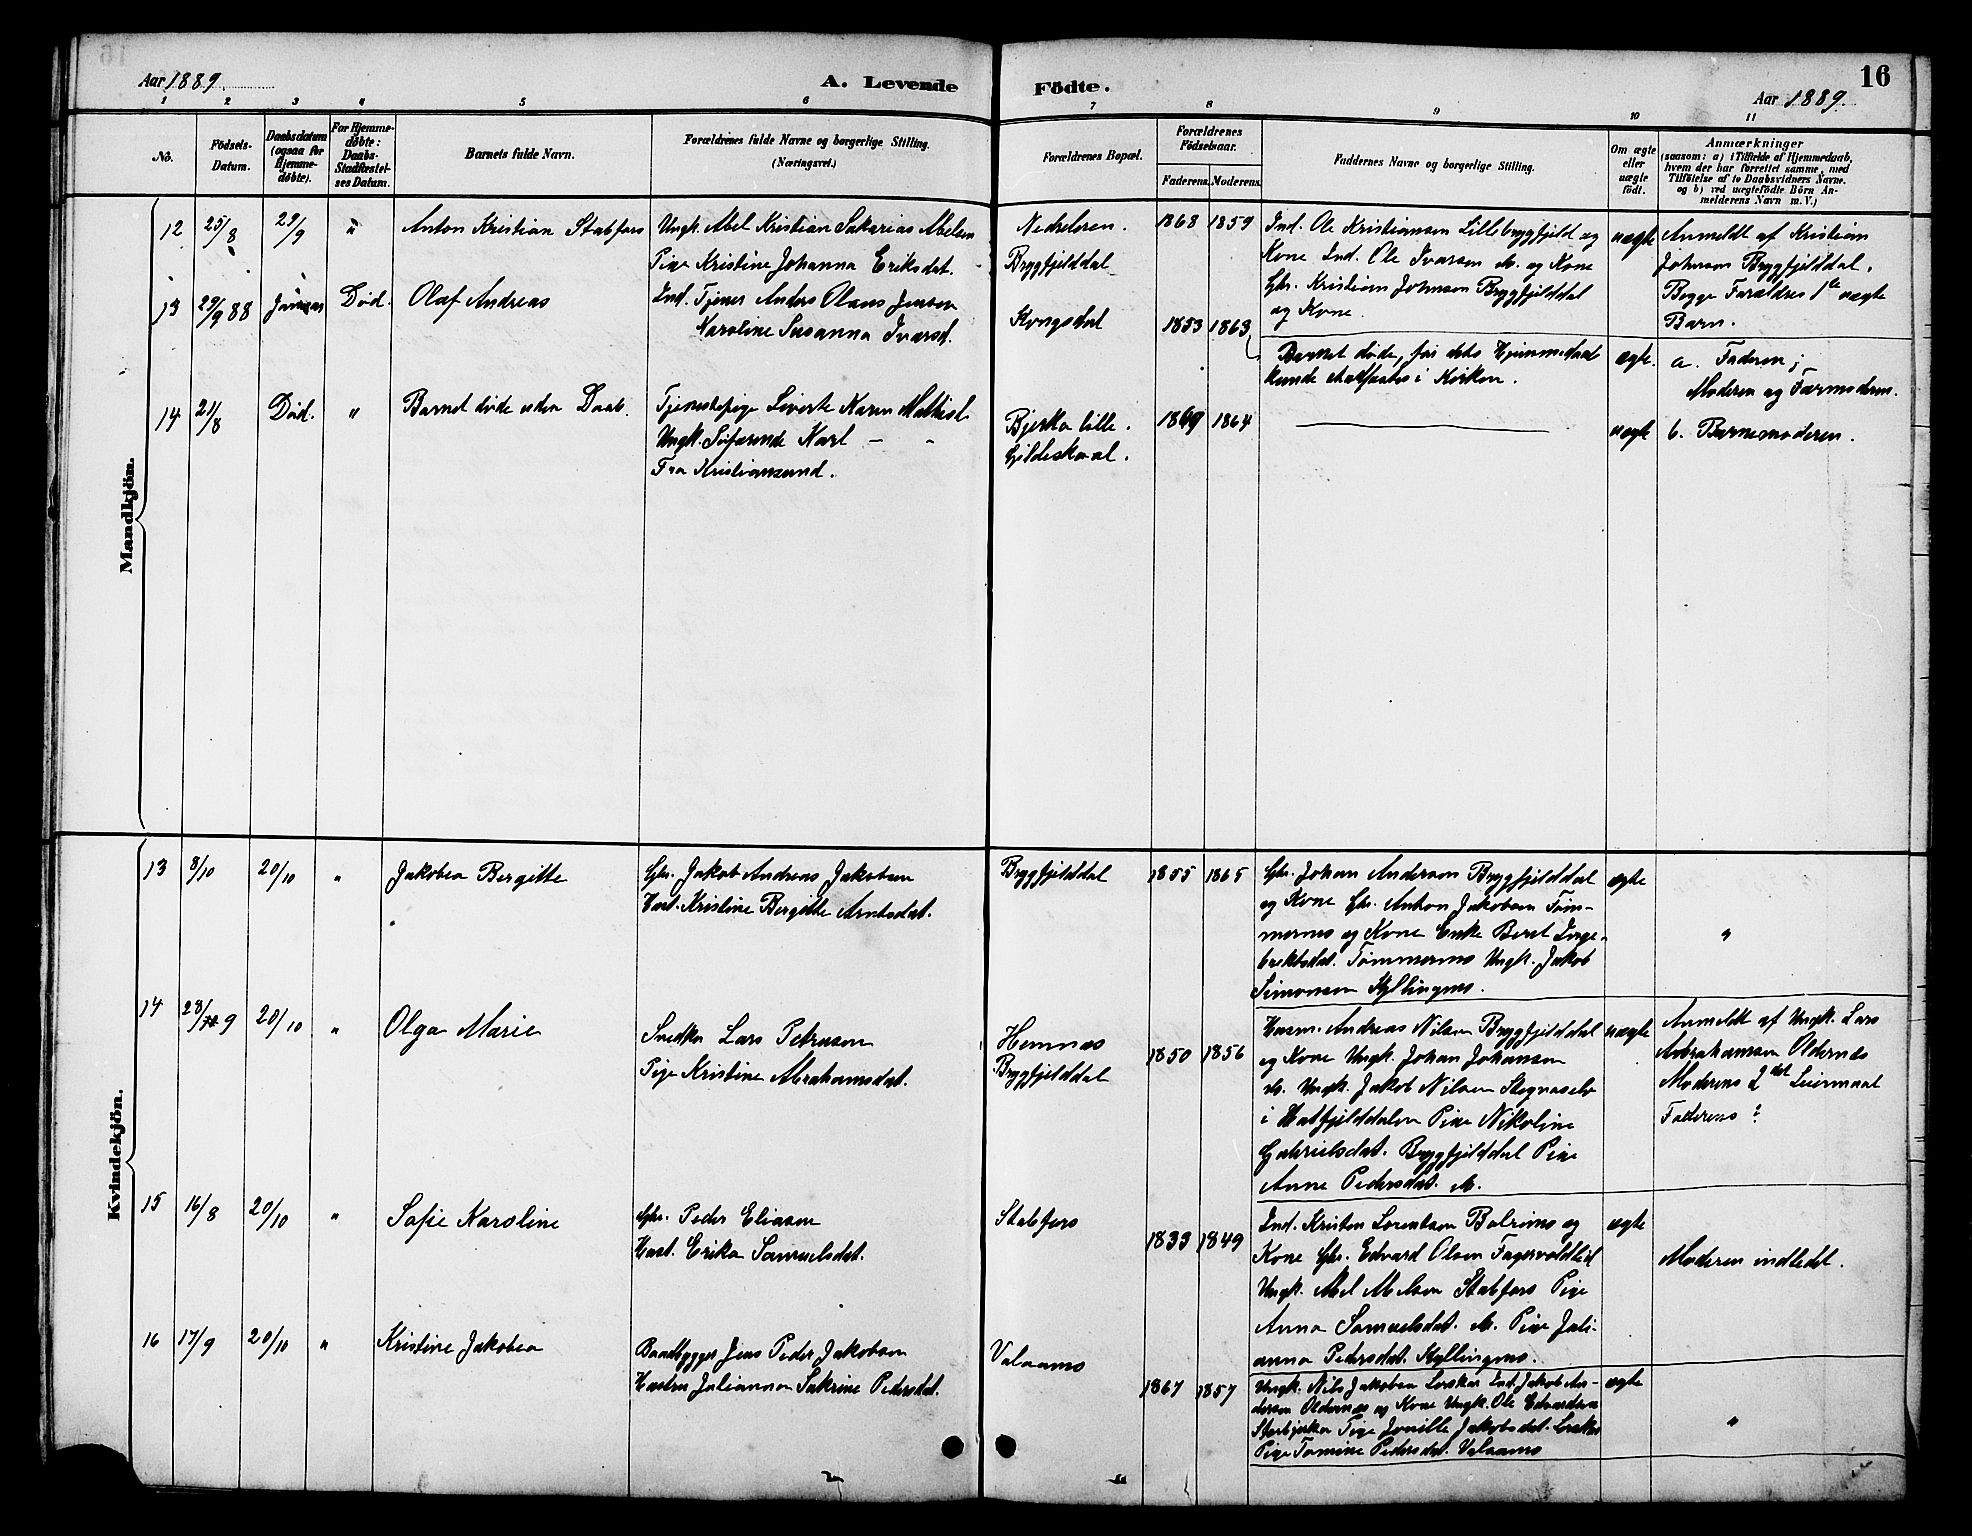 Aar 1889.
A. Levende
Födte.
16
Aar 1889.
1 2 3 4 5 6 7 8 9 10 11
No.
Födsels-
Datum.
Daabsdatum
(ogsaa for
Hjemme-
døbte).
For Hjemme-
døbte:
Daabs-
Stadfæstel-
ses Datum.
Barnets fulde Navn.
Forældrenes fulde Navne og borgerlige Stilling.
(Næringsvei.)
Forældrenes Bopæl.
Forældrenes
Födselsaar.
Faderens. Moderens.
Faddernes Navne og borgerlige Stilling.
Om ægte
eller
uægte
født.
Anmærkninger
(saasom: a) i Tilfælde af Hjemmedaab,
hvem der har forrettet samme, med
Tilföielse af to Daabsvidners Navne.
og b) ved uægtefödte Börn An-
melderens Navn m. V.)
Mandkjön.
12 25/8 29/9 " Anton Kristian Stabfors
Ungk. Abel Kristian Sakarias Abelsen
Pige Kristine Johanna Eriksdat.
Bryggfjelddal
1868 1859
Ind. Ole Kristiansen Lillebryggfjeld og
Kone Ind. Ole Ivarsen ib. og Kone
Gbr. Kristian Johnsen Bryggfjelddal
og Kone.
uægte
Anmeldt af Kristian
Johnsen Bryggfjelddal.
Begge Forældres 1ste uægte
Barn.
13 29/9 88 Død. Olaf Andreas
Ind. Tjener Anders Olaus Jensen
Karoline Susanna Ivarsd.
Kongsdal
1853 1863
Barnet døde, før dets Hjemmedaab
kunde stadfæstes i Kirken.
ægte.
a. Faderen;
Moderen og Farmoderen.
14 21/8 Død. " Barnet døde uden Daab.
Tjenestepige Siverte Karen Mathisd.
Ungk. Søfarende Karl — "
Fra Kristiansund.
Bjerka lille.
Gildeskaal.
1864
uægte
b. Barnemoderen.
Kvindekjön.
13 8/10 20/10 " Jakobea Bergitte
Gbr. Jakob Andreas Jakobsen
Hust. Kristine Bergitte Arntsdat.
Bryggfjelddal
1855 1865
Gbr. Johan Anderson Bryggfjelddal
og Kone Gbr. Anton Jakobsen Tøm-
mernes og Kone Enke Beret Inge-
brektsdat. Tømmernes Ungk. Jakob
Simonsen Kyllingnes.
ægte
"
14 28/9 20/10 " Olga Marie
Snedker Lars Petersen
Pige Kristine Abrahamsdat.
Hemnæs
Bryggfjelddal
1850 1856
Husm. Andreas Nilsen Bryggfjelddal
og Kone Ungk. Johan Johansen
ib. Ungk. Jakob Nilsen
i Hatfjelddalen Pige Nikoline
Gabrielsdat. Bryggfjelddal Pige
Anne Pedersdat. ib.
uægte
Anmeldt af Ungk. Lars
Abrahamsen Oldernæs
Moderens 2det Leiermaal
Faderens ?
15 16/8 20/10 " Sofie Karoline
Gbr. Peder Eliasen
Hust. Erika Samuelsdat.
Stabfors
1833 1849
Ind. Kristen Lorentsen og
Kone Gbr. Edvard Olsen Fagervoldlid
Ungk. Abel Abelsen Stabfors Pige
Anna Samuelsdat. ib. Pige Juli-
anna Pedersdat. Kyllingnes.
ægte
Moderen indledet.
16 17/9 20/10 " Kristine Jakobea
Baadbygger Jens Peder Jakobsen
Hustru Julianna Sakrine Pedersdat.
Valaanes
1867 1857
Ungk. Nils Jakobsen Leskar Ind. Jakob An-
dersen Oldernæs og Kone Ungk. Ole Edvardsen
Storbjerka Pige Jakobsdat.
Pige Tomine Pedersdat. Valaanes
ægte
"